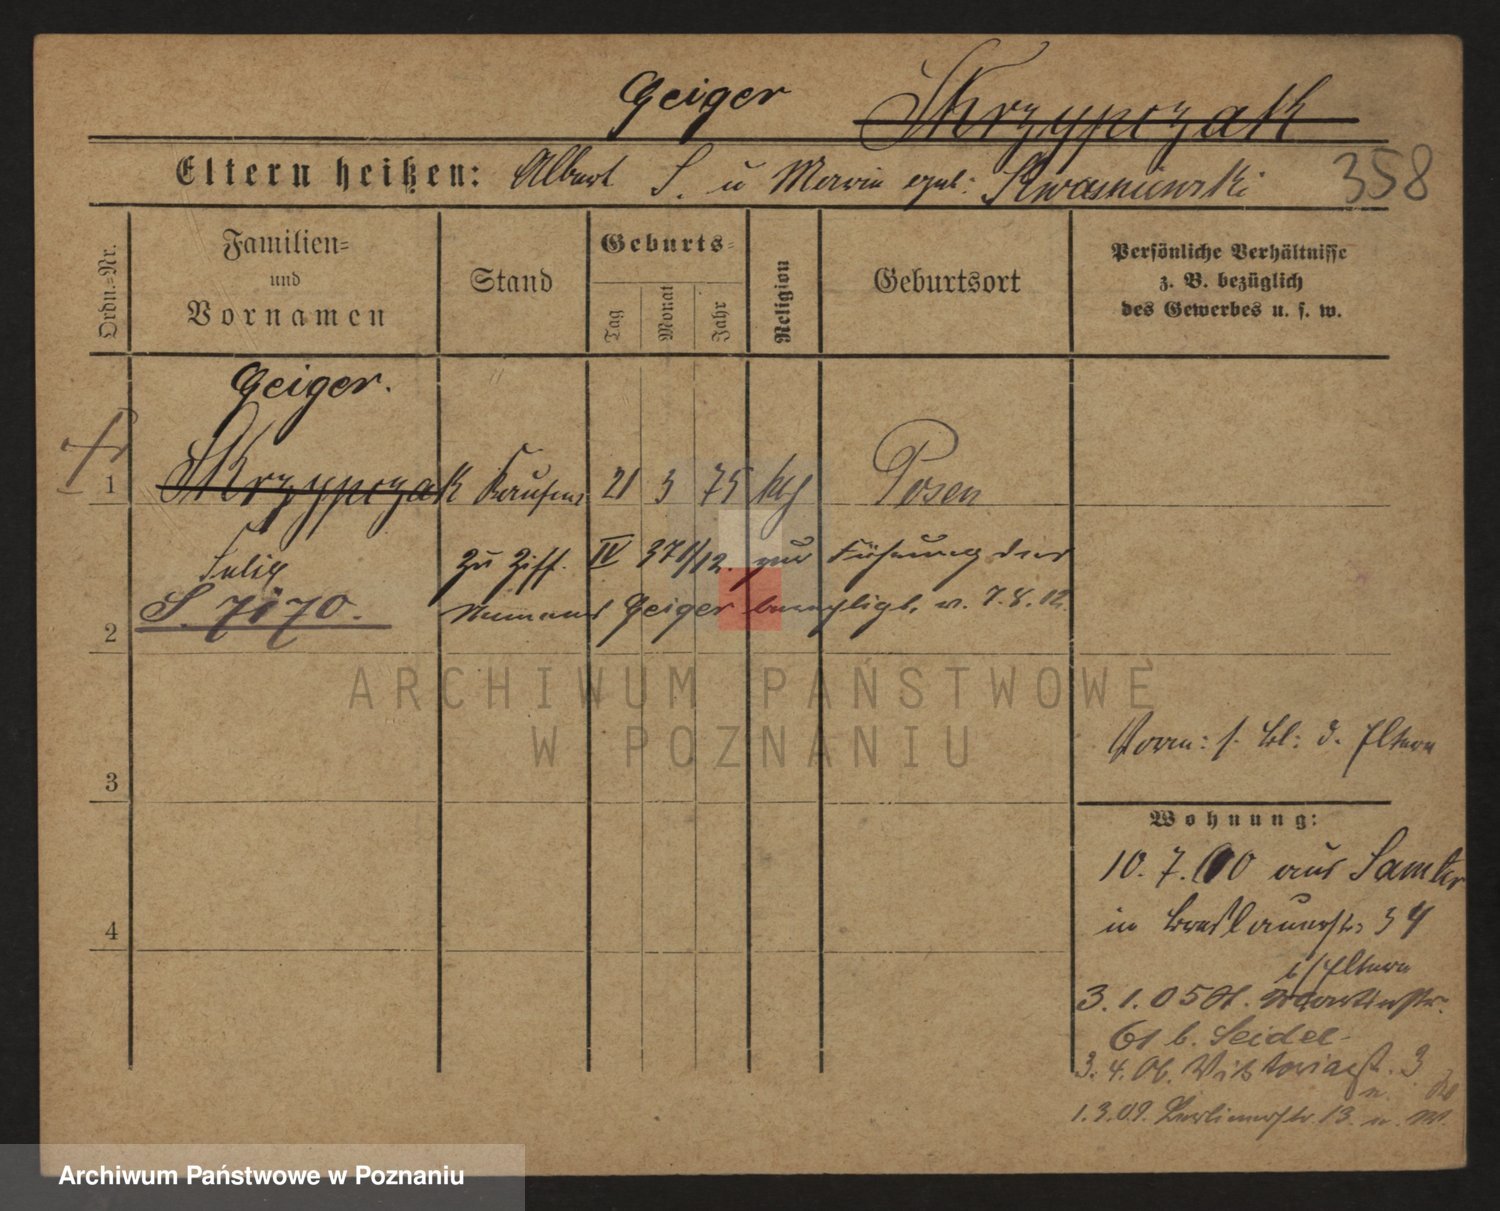 Geiger Skrzypczak
Eltern heißen: Albert S. u Marie geb: Kwasniewski 358
Ordn.-Nr.
Familien-
und
Vornamen
Stand
Geburts-
Tag
Monat
Jahr
Religion
Geburtsort
Persönliche Verhältnisse
z. B. bezüglich
des Gewerbes u. s. w.
Geiger.
1 Skrzypczak Kaufm 21 3 75 kth Posen
Felix Zu Ziff. IV 3711/12. zur Führung des
S. 7170. Namens Geiger berechtigt. v. 7.8.12.
2
ARCHIWUM PAŃSTWOWE
W POZNANIU
Vorm: s. Bl: d. Eltern
3
Wohnung:
10.7.00 aus Samter
in Breslauerstr. 34
b/Eltern
4
3.1.05 St. Martinstr.
61 b. Seidel
3.4.06. Viktoriastr. 3
1.3.09. Berlinerstr. 13
Archiwum Państwowe w Poznaniu